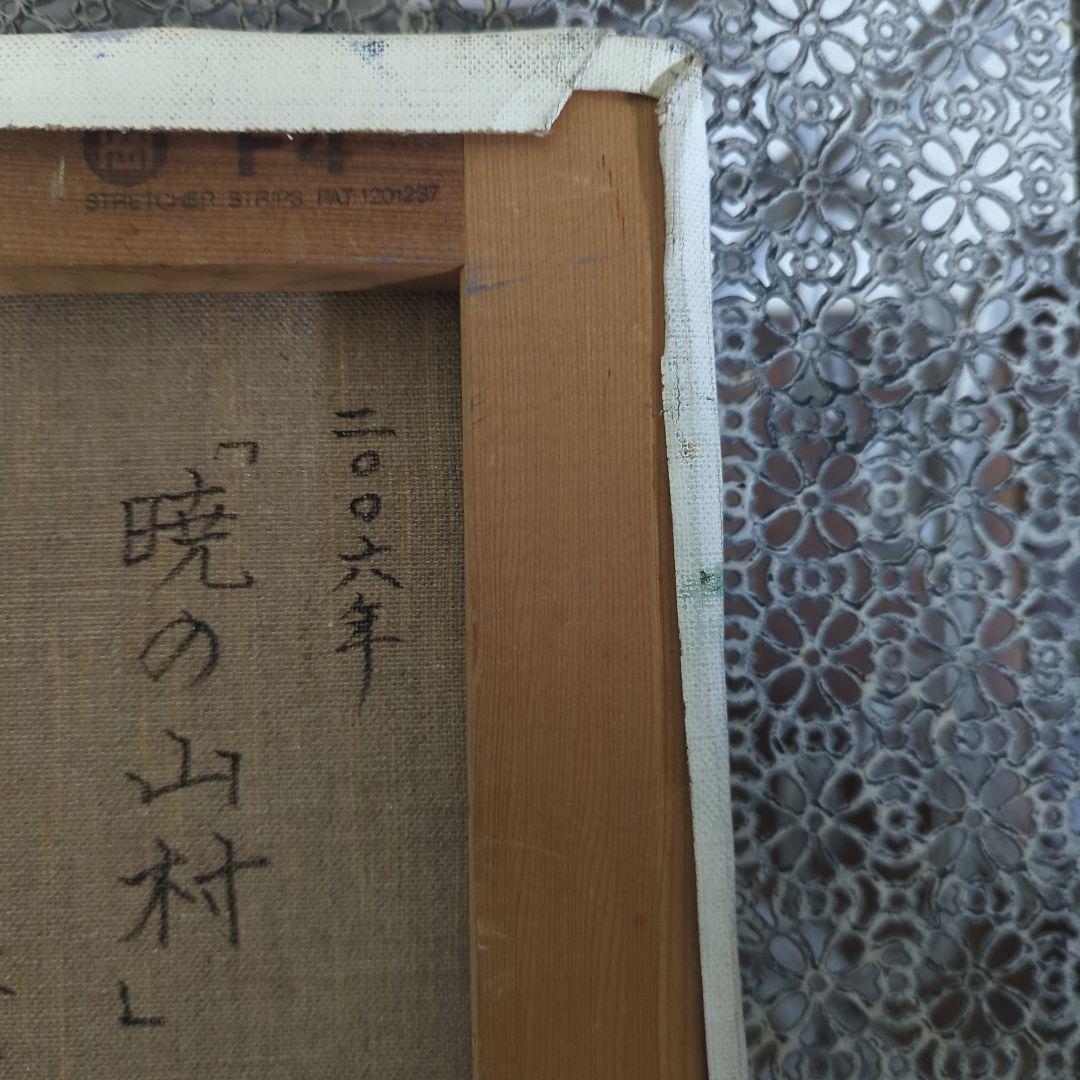 F4
STRETCHER STRIPS PAT.1201237
二〇〇六年
「暁の山村」